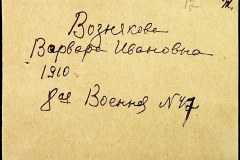 Вознякова
Варвара Ивановна
1910
8ая Военная N47